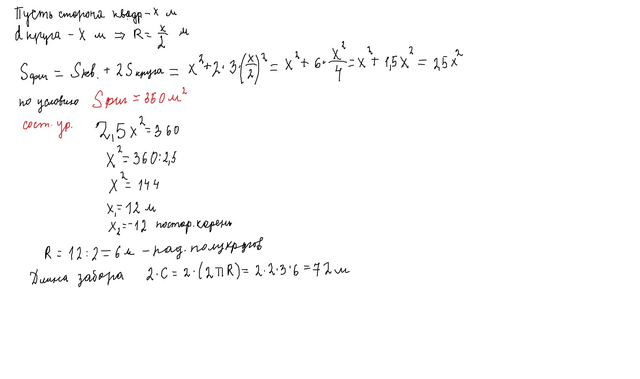 Пусть сторона квадр - x м
d круга - x м ⇒ R = x/2 м
Sфиг = Sкв. + 2Sкруга = x² + 2·3·(x/2)² = x² + 6·x²/4 = x² + 1,5x² = 2,5x²
по условию Sфиг = 360 м²
сост. ур. 2,5x² = 360
x² = 360:2,5
x² = 144
x₁ = 12 м
x₂ = -12 постор. корень
R = 12:2 = 6 м - рад. полукругов
Длина забора 2·C = 2·(2πR) = 2·2·3·6 = 72 м